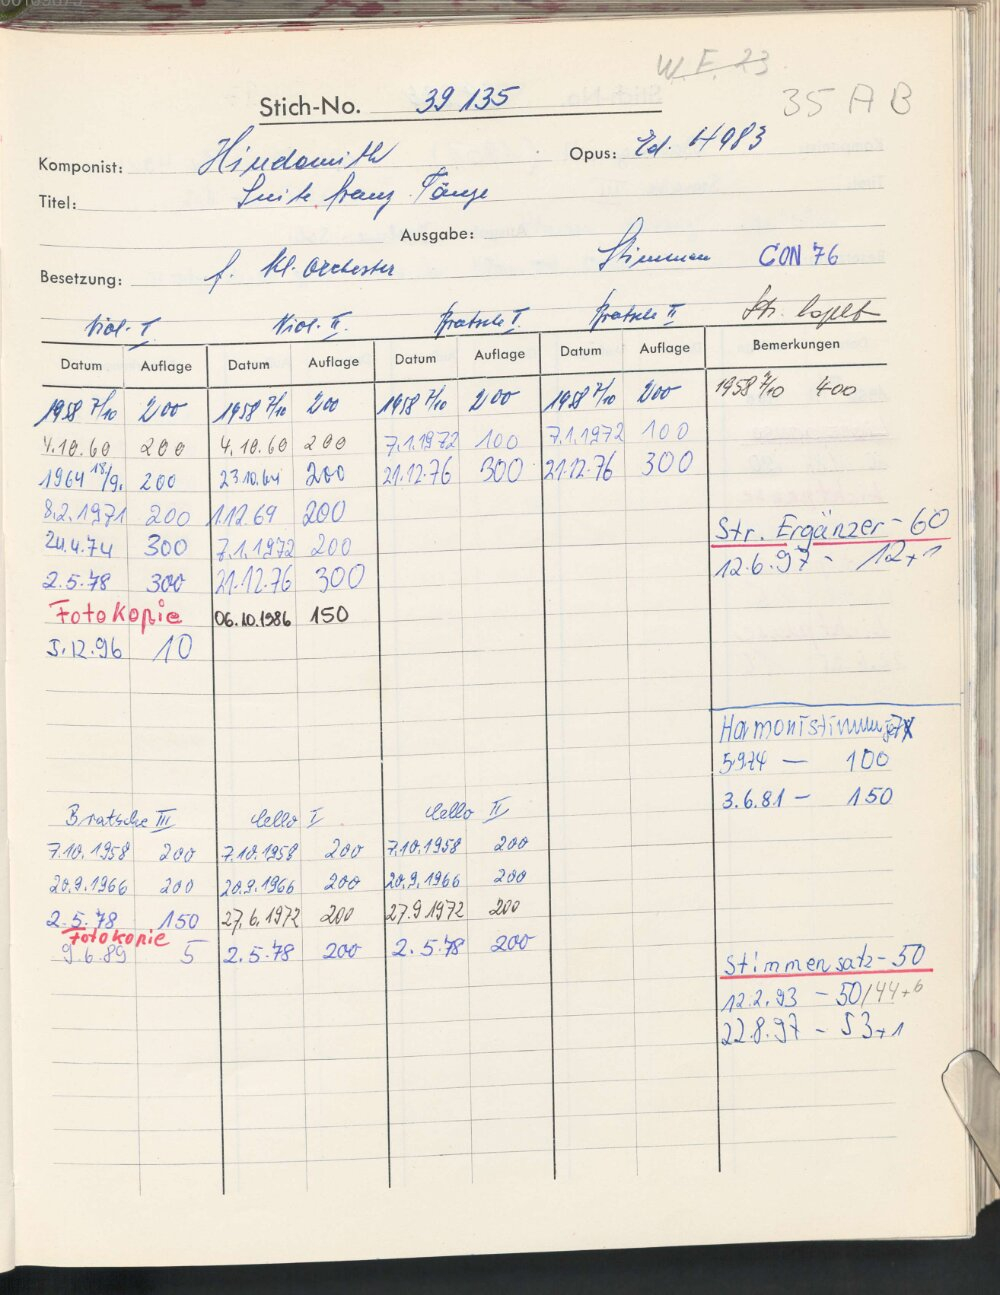 W. F. 23
35 A B
Stich-No. 39 135
Komponist: Hindemith Opus: Ed. 4983
Titel: Suite franz. Tänze
Ausgabe:
Besetzung: f. kl. Orchester Stimmen CON 76
Viol. I Viol. II Bratsche I Bratsche II Str. kplt
Datum Auflage Datum Auflage Datum Auflage Datum Auflage Bemerkungen
1958 7/10 200 1958 7/10 200 1958 7/10 200 1958 7/10 200 1958 7/10 400
4.10.60 200 4.10.60 200 7.1.1972 100 7.1.1972 100
1964 18/9. 200 23.10.64 200 21.12.76 300 21.12.76 300
8.2.1971 200 1.12.69 200
Str. Ergänzer - 60
24.4.74 300 7.1.1972 200
12.6.97 - 12+1
2.5.78 300 21.12.76 300
Fotokopie 06.10.1986 150
5.12.96 10
Harmoniestimmen
5.9.74 — 100
3.6.81 - 150
Bratsche III Cello I Cello II
7.10.1958 200 7.10.1958 200 7.10.1958 200
20.9.1966 200 20.9.1966 200 20.9.1966 200
2.5.78 150 27.6.1972 200 27.9.1972 200
Fotokopie
9.6.89 5 2.5.78 200 2.5.78 200
Stimmensatz - 50
12.2.93 - 50/44+6
22.8.97 - 53+1